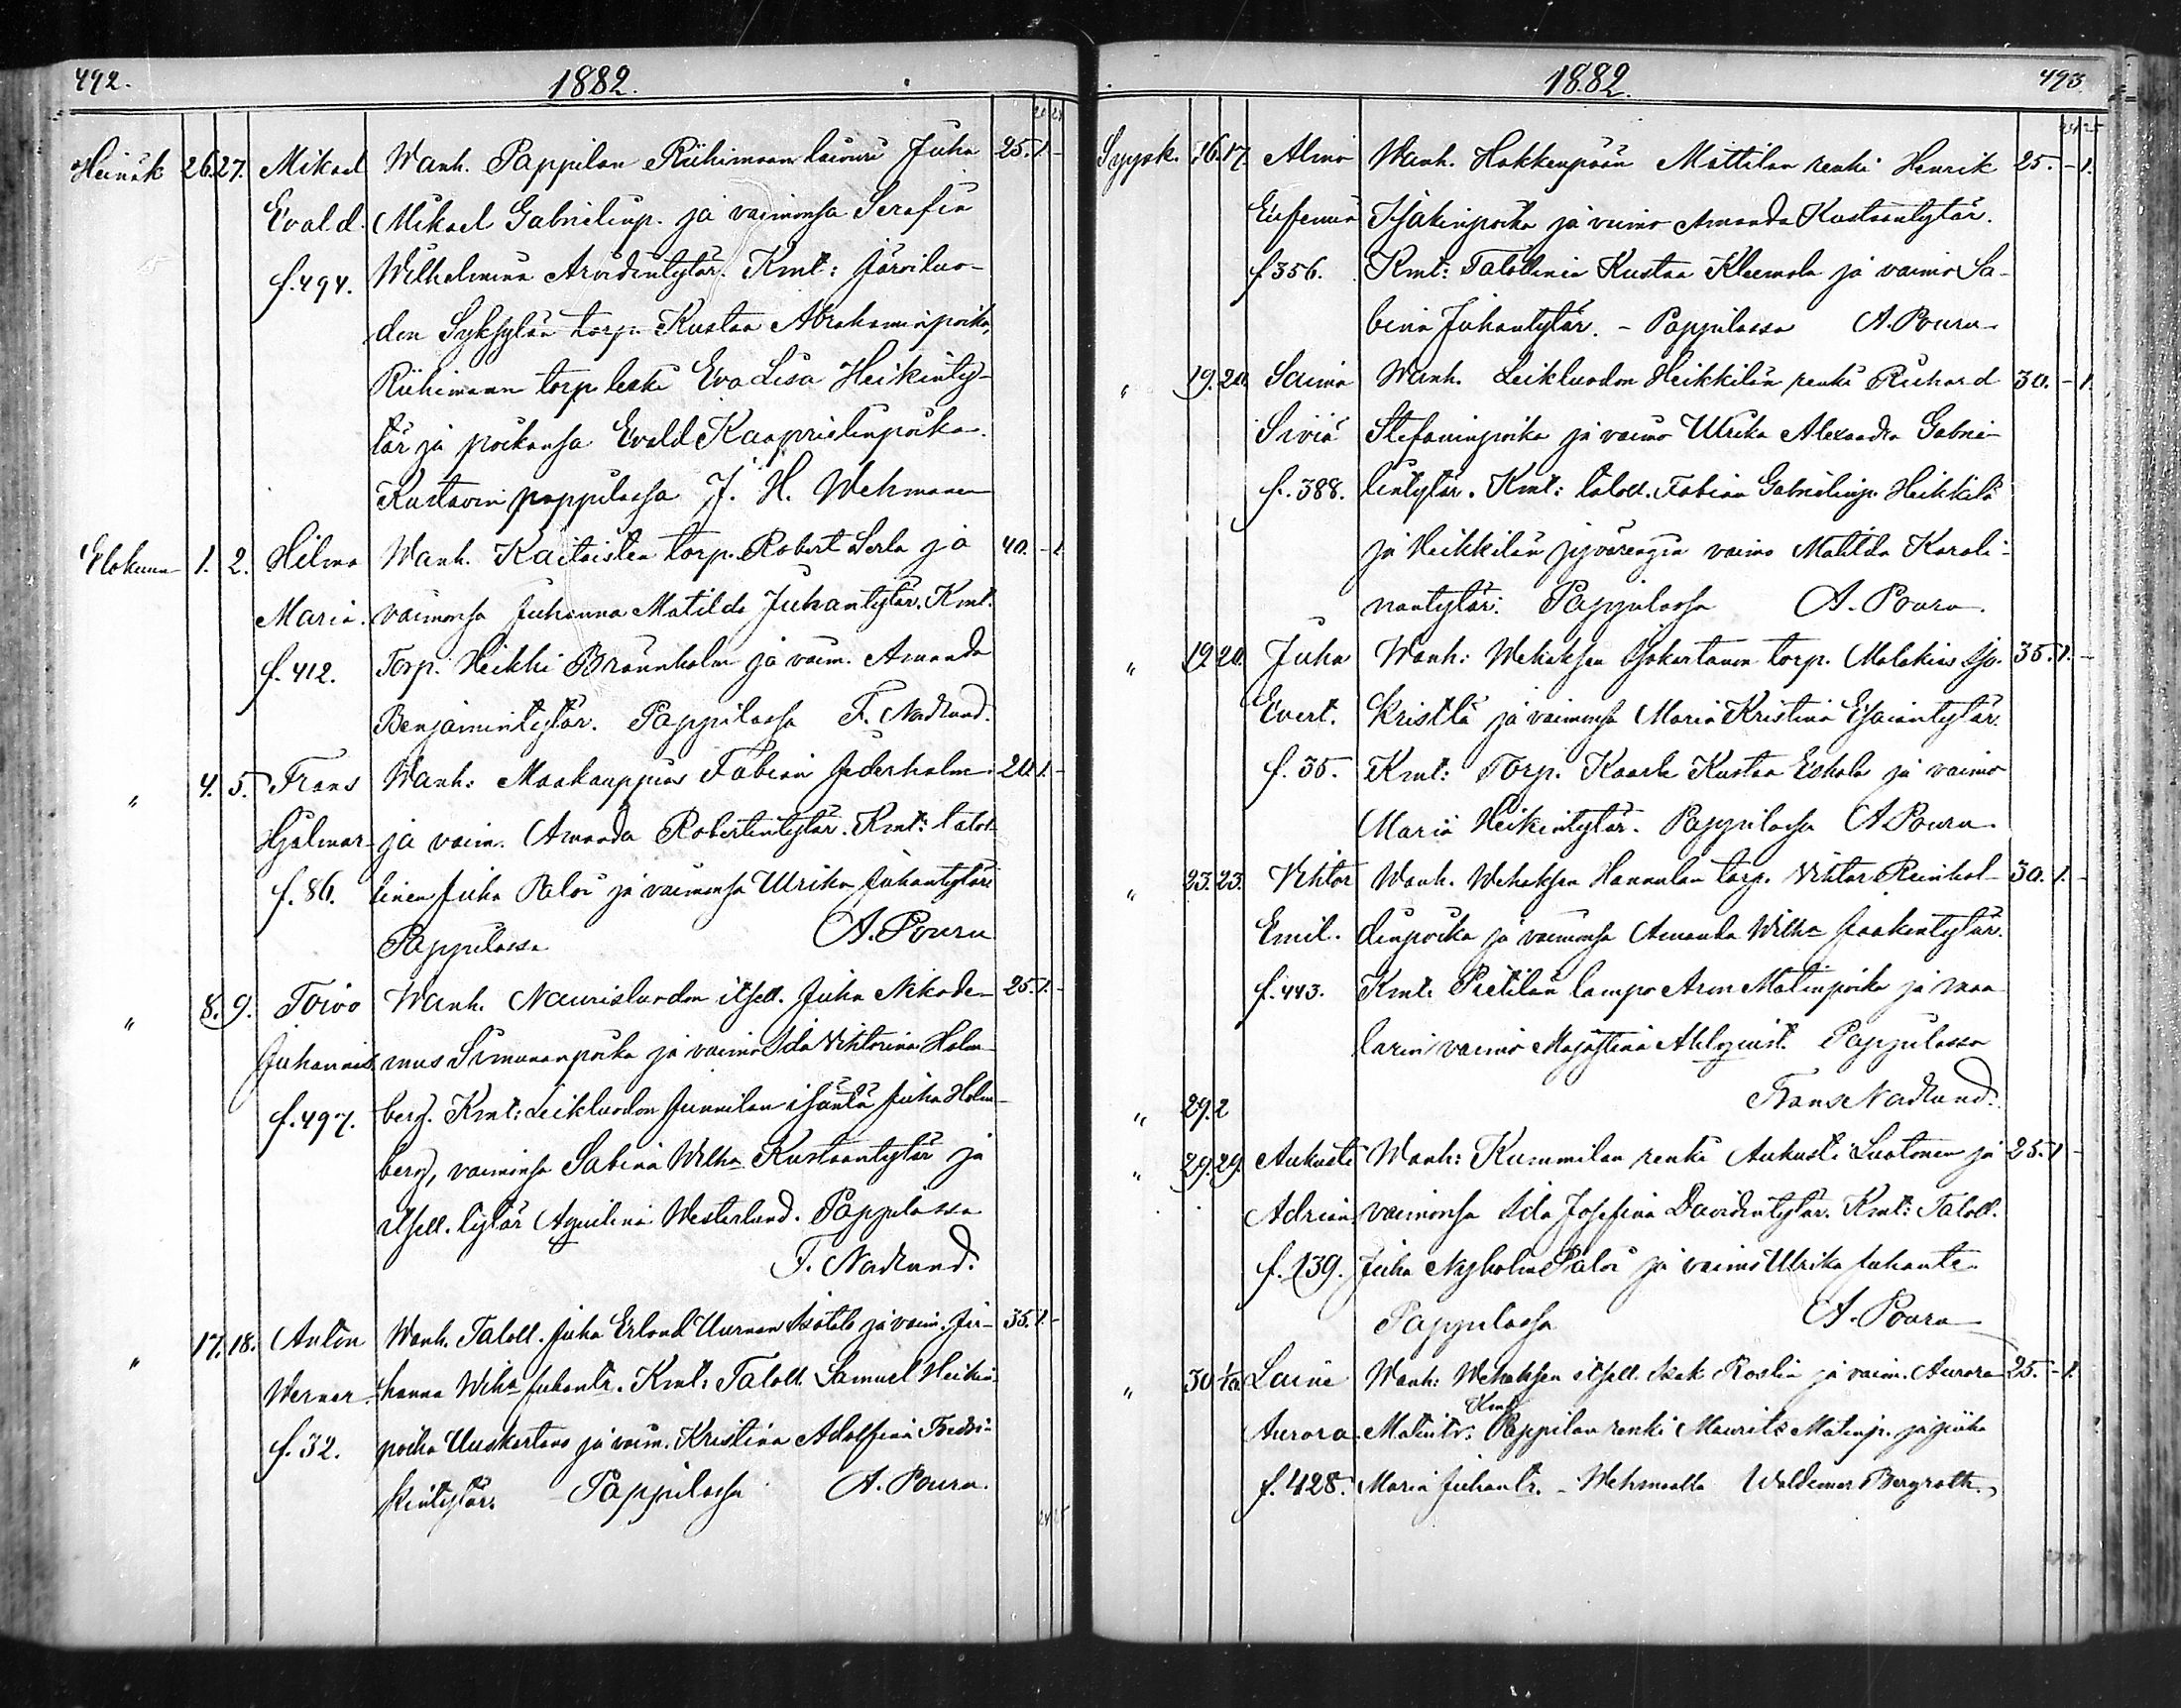 492. 1882.
Heinäk 26. 27. Mikael Wanh. Pappilan Riihimaan Juha 25. 1 -
Evald. Mikael Gabrielinp. ja vaimonsa Serafia
f. 494. Wilhelmina Arvidintytär. Kmt: Järviluo-
don Syksylän torp. Kustaa Abrahaminpoika,
Riihimaan torp. leski Eva Lisa Heikinty-
tär ja poikansa Evald Kaaprielinpoika.
Kustavin pappilassa J. H. Wehmanen
Elokuun 1. 2. Hilma Wanh. Kaitaisten torp. Robert Serla ja 40. - 1
Maria. vaimonsa Juhanna Matilda Juhantytär. Kmt.
f. 412. Torp. Heikki Brännholm ja vaim. Amanda
Benjamintytär. Pappilassa F. Nadlund.
" 4. 5. Frans Wanh: Maakauppias Fabian Jederholm 20. 1. -
Hjalmar ja vaim. Amanda Robertintytär. Kmt: talol-
f. 86. linen Juha Paloi ja vaimonsa Ulrika Juhantytär
Pappilassa A. Pouru
" 8. 9. Toivo Wanh. Naurisluodon itsell. Juha Nikode- 25. 1. -
Juhannes mus Simunanpoika ja vaimo Ida Vihtorina Holm-
f. 497. berg. Kmt: Leikluodon Junnilan isäntä Juha Holm-
berg, vaimonsa Sabina Wilha Kustaantytär ja
itsell. tytär Aqvilina Westerlund. Pappilassa
F. Nadlund.
" 17. 18. Anton Wanh. Taloll. Juha Erland Uurnan Isotalo ja vaim. Ju- 35. 1. -
Werner hanna Wilha Juhantr. Kmt: Taloll. Samuel Heikin-
f. 32. poika Uuskartano ja vaim. Kristina Adolfina Fredri-
kintytär. Pappilassa A. Pouru.
1882. 493
Syysk. 16. 17 Alma Wanh. Hakkenpään Mattilan renki Henrik 25. - 1.
Eufemia Isakinpoika ja vaimo Amanda Kustaantytär.
f 356. Kmt: Talollinen Kustaa Kleemola ja vaimo Sa-
bina Juhantytär. - Pappilassa A. Pouru
" 19. 20. Saima Wanh. Leikluodon Heikkilän renki Richard 30. - 1.
Siviä Stefaninpoika ja vaimo Ulrika Alexandra Gabrie-
f. 388. lintytär. Kmt: taloll. Fabian Gabrielinp. Heikkilä
ja Heikkilän vaimo Matilda Karoli-
nantytär. Pappilassa A. Pouru.
" 19. 20. Juha Wanh: Wehaksen Isokartanon torp. Malakias Iso- 35. 1. -
Evert. Kristlä ja vaimonsa Maria Kristina Esaiantytär.
f. 35. Kmt: Torp. Kaarle Kustaa Eskola ja vaimo
Maria Heikintytär. Pappilassa A. Pouru.
" 23. 23. Vihtor Wanh. Wehaksen Hannulan torp. Vihtor Reinhol- 30. 1. -
Emil. dinpoika ja vaimonsa Amanda Wilha Jaakintytär.
f. 443. Kmt: Pietilän lampo Aron Matinpoika ja maa-
larin vaimo Majastina Ahlqvist. Pappilassa
Frans Nadlund.
" 29. 2
" 29. 29. Aukusti Wanh: Kummilan renki Aukusti Luotonen ja 25. 1 -
Adrian. vaimonsa Ida Josefina Davidintytär. Kmt: Taloll.
f. 139. Juha Nyholm Paloi ja vaimo Ulrika Juhantr.
Pappilassa A. Pouru
" 30 1/10 Laine Wanh: Wehaksen itsell. Isak Roslin ja vaim. Aurora 25. - 1.
Aurora. Matintr: Kmt Pappilan renki Maurits Matinp. ja piika
f. 428. Maria Juhantr. - Wehmaalla Waldemar Bergroth.